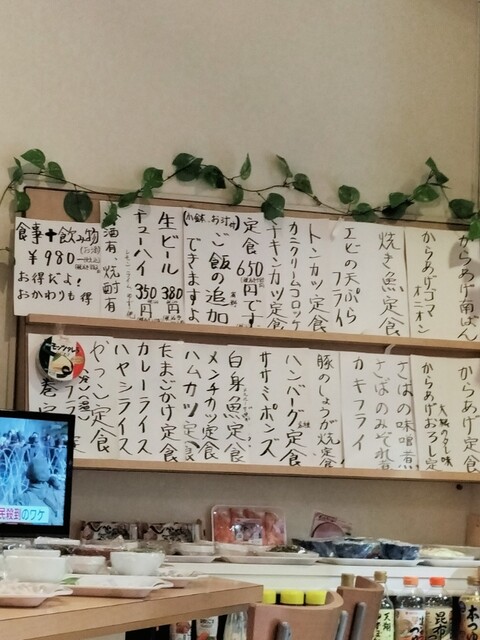 からあげ南ばん
からあげゴマ
オニオン
焼き魚定食
エビの天ぷら
フライ
トンカツ定食
カニクリームコロッケ
チキンカツ定食
定食650円です
(小鉢、お汁付)
ご飯の追加
できますよ
生ビール
380円
チューハイ
350円
酒有、焼酎有
食事+飲み物
¥980
お得だよ!
おかわりも得
からあげ定食
大阪のタレ味
からあげおろし定
さばの味噌煮
さばのみぞれ煮
カキフライ
豚のしょうが焼定食
ハンバーグ定食
ササミポンズ
白身魚定食
メンチカツ定食
ハムカツ定食
たまごかけ定食
カレーライス
ハヤシライス
やっこ定食
民殺到のワケ
昆布
つゆ
本つゆ